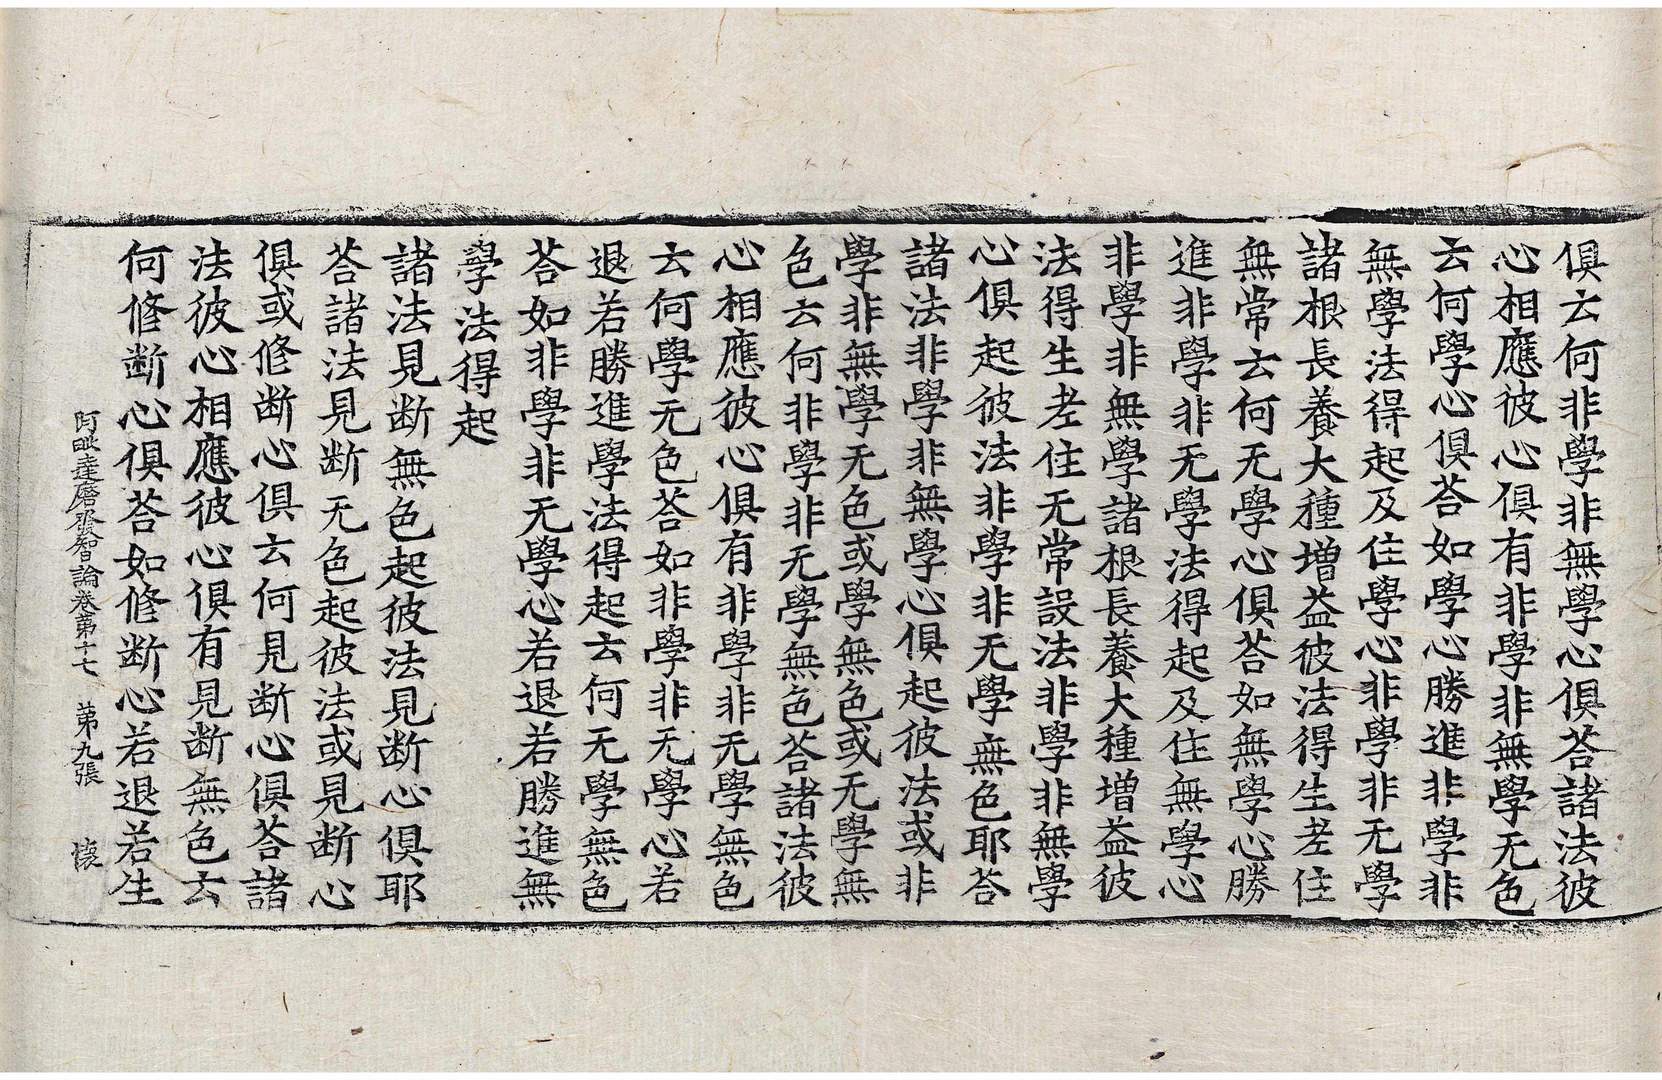 俱云何非學非無學心俱荅諸法彼
心相應彼心俱有非學非無學无色
云何學心俱荅如學心勝進非學非
無學法得起及住學心非學非无學
諸根長養大種增益彼法得生老住
無常云何无學心俱荅如無學心勝
進非學非无學法得起及住無學心
非學非無學諸根長養大種增益彼
法得生老住无常設法非學非無學
心俱起彼法非學非无學無色耶荅
諸法非學非無學心俱起彼法或非
學非無學无色或學無色或无學無
色云何非學非无學無色荅諸法彼
心相應彼心俱有非學非无學無色
云何學无色荅如非學非无學心若
退若勝進學法得起云何无學無色
荅如非學非无學心若退若勝進無
學法得起
諸法見断無色起彼法見断心俱耶
荅諸法見断无色起彼法或見断心
俱或修断心俱云何見断心俱荅諸
法彼心相應彼心俱有見断無色云
何修断心俱荅如修断心若退若生
阿毗達磨發智論卷第十七 第九張 懷